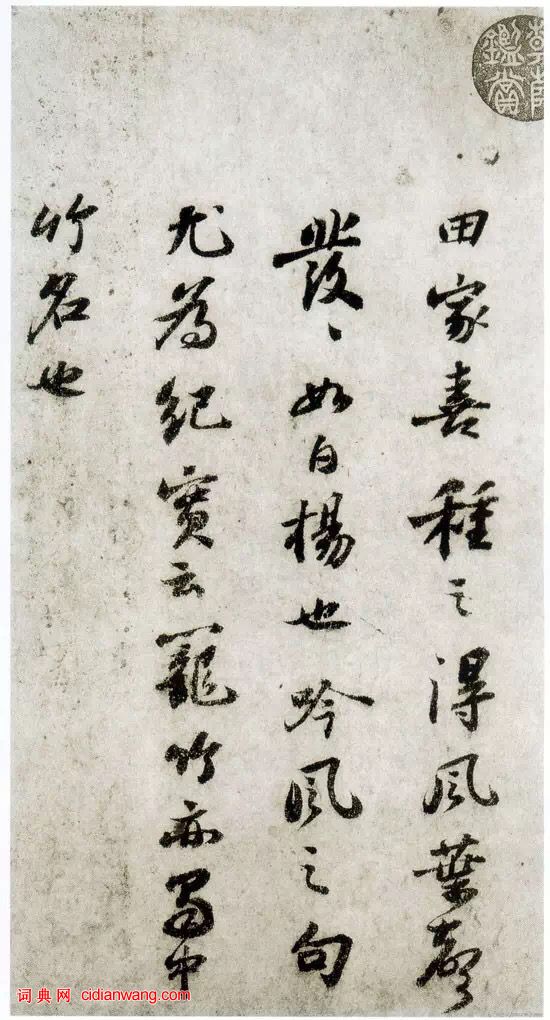 田家喜種之得風葉聲
發〻如白楊也吟風之句
尤為紀實云籠竹亦蜀中
竹名也
词典网 cidianwang.com